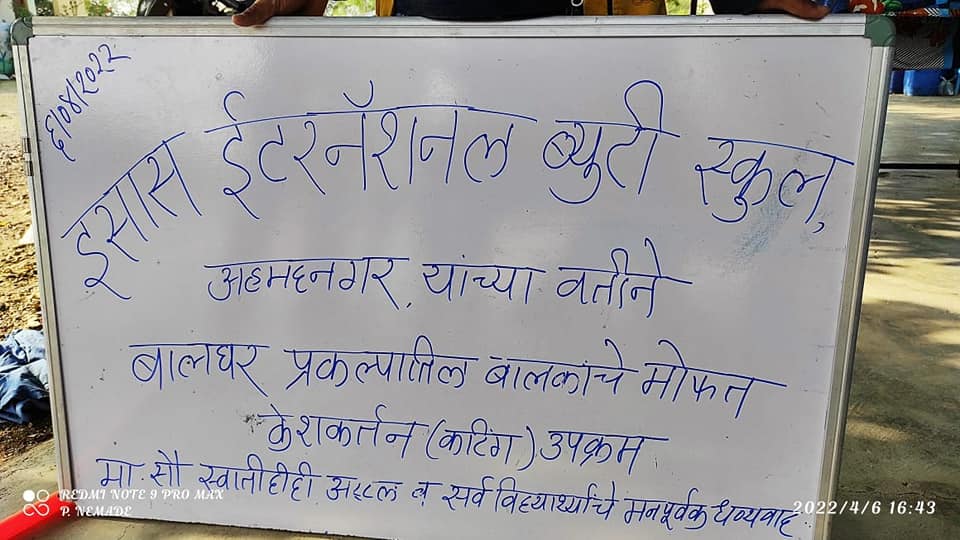 ६/०४/२०२२
इसास ईटरनॅशनल ब्युटी स्कुल,
अहमदनगर, यांच्या वतीने
बालघर प्रकल्पातिल बालकांचे मोफत
केशकर्तन (कटिंग) उपक्रम
मा. सौ स्वातीदीदी अट्टल व सर्व विद्यार्थ्यांचे मनपूर्वक धन्यवाद.
REDMI NOTE 9 PRO MAX
P. NEMADE
2022/4/6 16:43